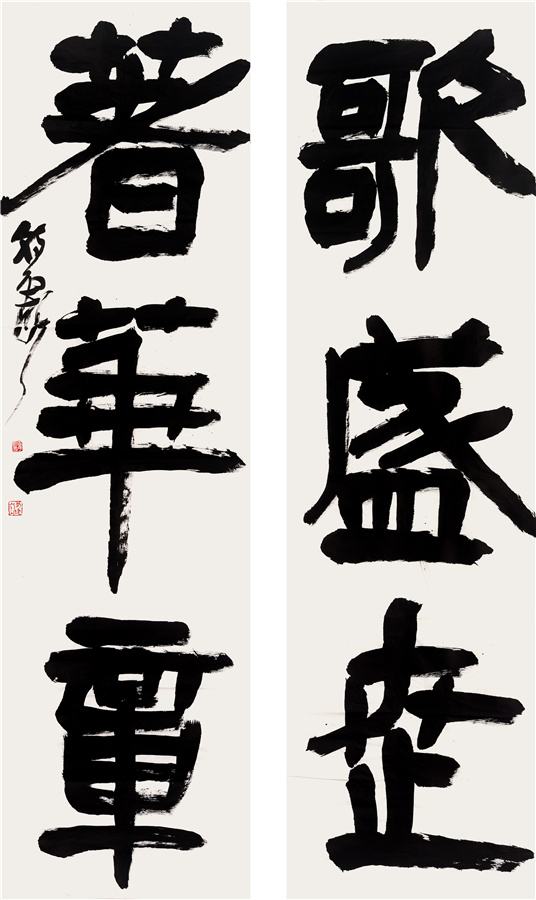 歌盛世
著華章